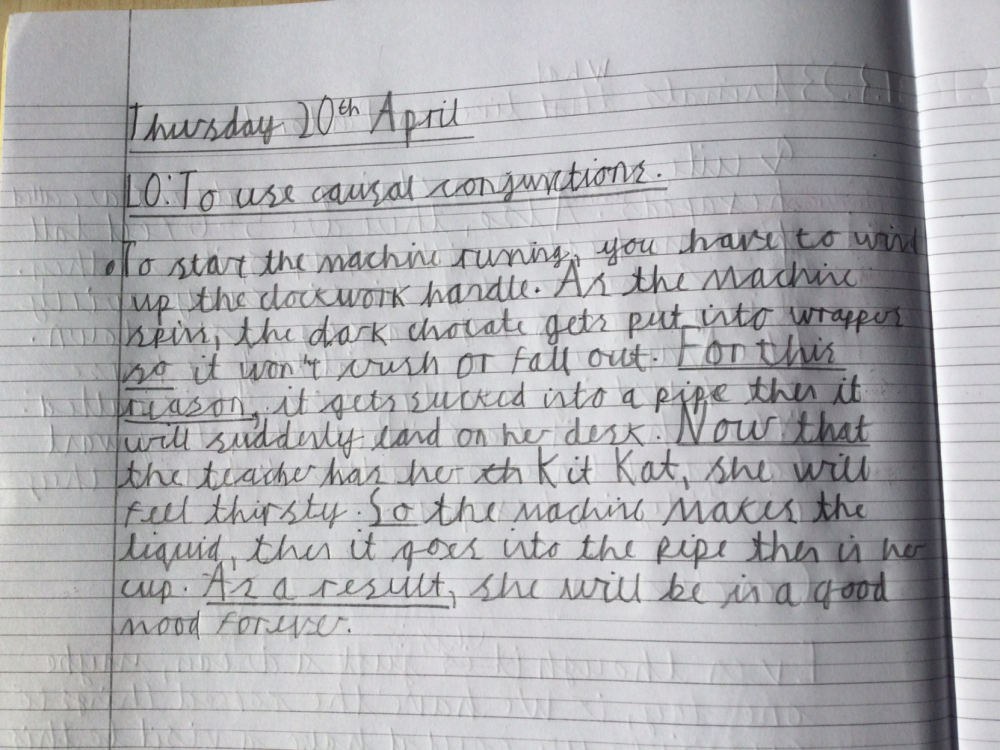 Thursday 20th April
LO: To use causal conjunctions.
To start the machine runing, you have to wind
up the clockwork handle. As the machine
spins, the dark chocate gets put into wrapper
so it won't crush or fall out. For this
reason, it gets sucked into a pipe then it
will suddenly land on her desk. Now that
the teacher has her th Kit Kat, she will
feel thirsty. So the machine makes the
liquid, then it goes into the pipe then in her
cup. As a result, she will be in a good
mood forever.